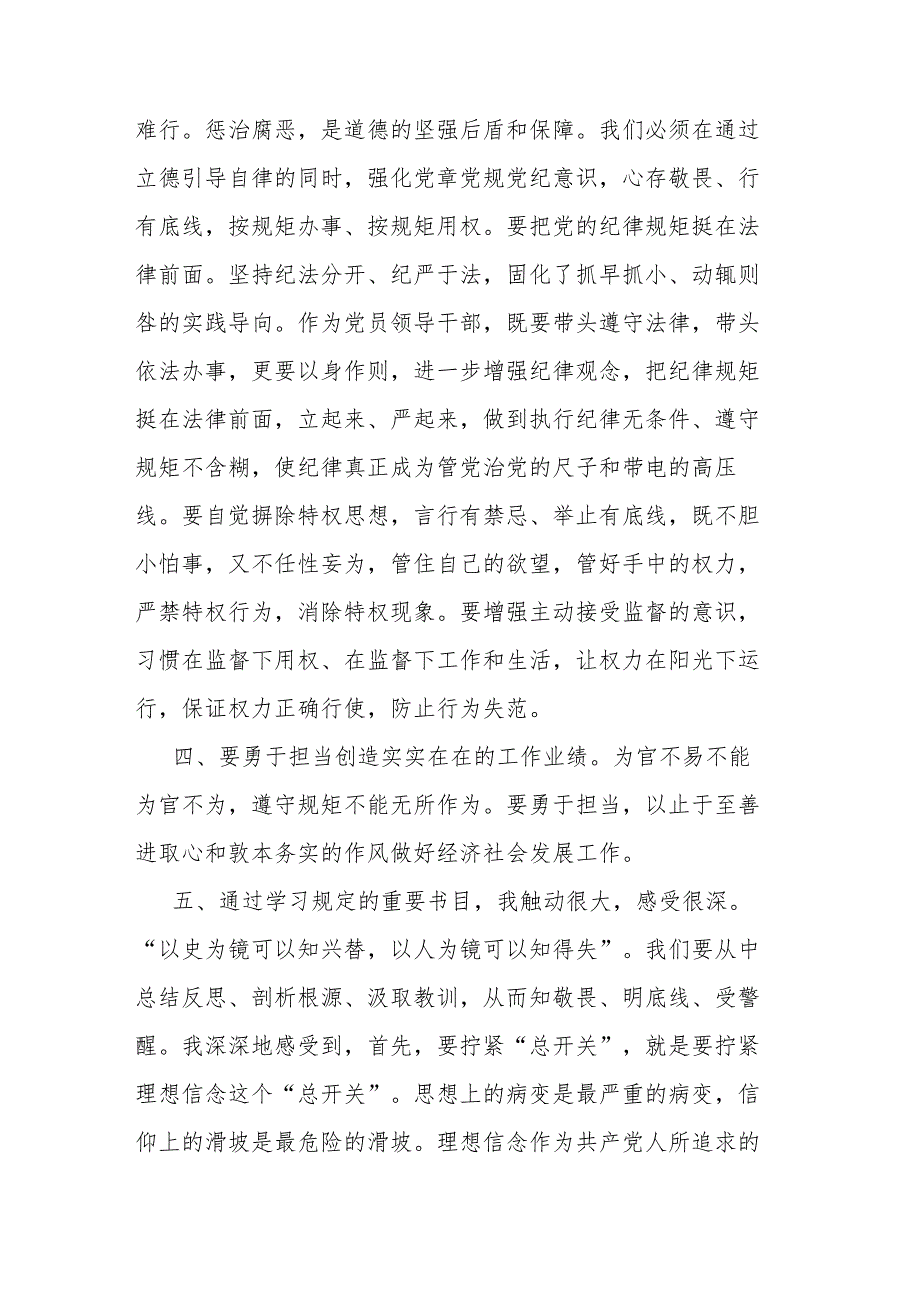 难行。惩治腐恶，是道德的坚强后盾和保障。我们必须在通过
立德引导自律的同时，强化党章党规党纪意识，心存敬畏、行
有底线，按规矩办事、按规矩用权。要把党的纪律规矩挺在法
律前面。坚持纪法分开、纪严于法，固化了抓早抓小、动辄则
咎的实践导向。作为党员领导干部，既要带头遵守法律，带头
依法办事，更要以身作则，进一步增强纪律观念，把纪律规矩
挺在法律前面，立起来、严起来，做到执行纪律无条件、遵守
规矩不含糊，使纪律真正成为管党治党的尺子和带电的高压
线。要自觉摒除特权思想，言行有禁忌、举止有底线，既不胆
小怕事，又不任性妄为，管住自己的欲望，管好手中的权力，
严禁特权行为，消除特权现象。要增强主动接受监督的意识，
习惯在监督下用权、在监督下工作和生活，让权力在阳光下运
行，保证权力正确行使，防止行为失范。
四、要勇于担当创造实实在在的工作业绩。为官不易不能
为官不为，遵守规矩不能无所作为。要勇于担当，以止于至善
进取心和敦本务实的作风做好经济社会发展工作。
五、通过学习规定的重要书目，我触动很大，感受很深。
“以史为镜可以知兴替，以人为镜可以知得失”。我们要从中
总结反思、剖析根源、汲取教训，从而知敬畏、明底线、受警
醒。我深深地感受到，首先，要拧紧“总开关”，就是要拧紧
理想信念这个“总开关”。思想上的病变是最严重的病变，信
仰上的滑坡是最危险的滑坡。理想信念作为共产党人所追求的